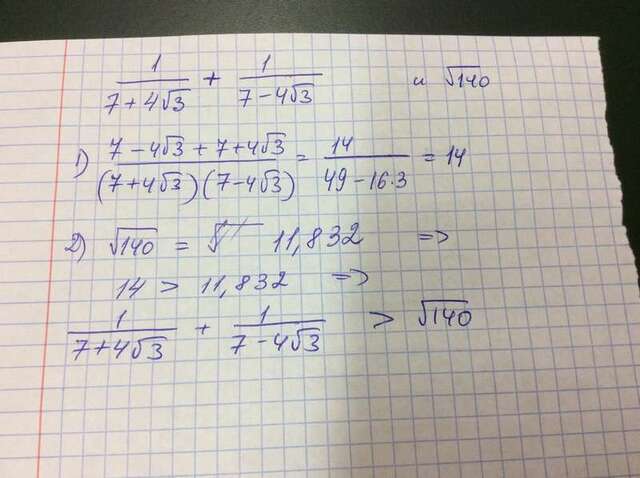 1/(7+4√3) + 1/(7-4√3) и √140
1) (7-4√3+7+4√3)/((7+4√3)(7-4√3)) = 14/(49-16·3) = 14
2) √140 = 11,832 =>
14 > 11,832 =>
1/(7+4√3) + 1/(7-4√3) > √140